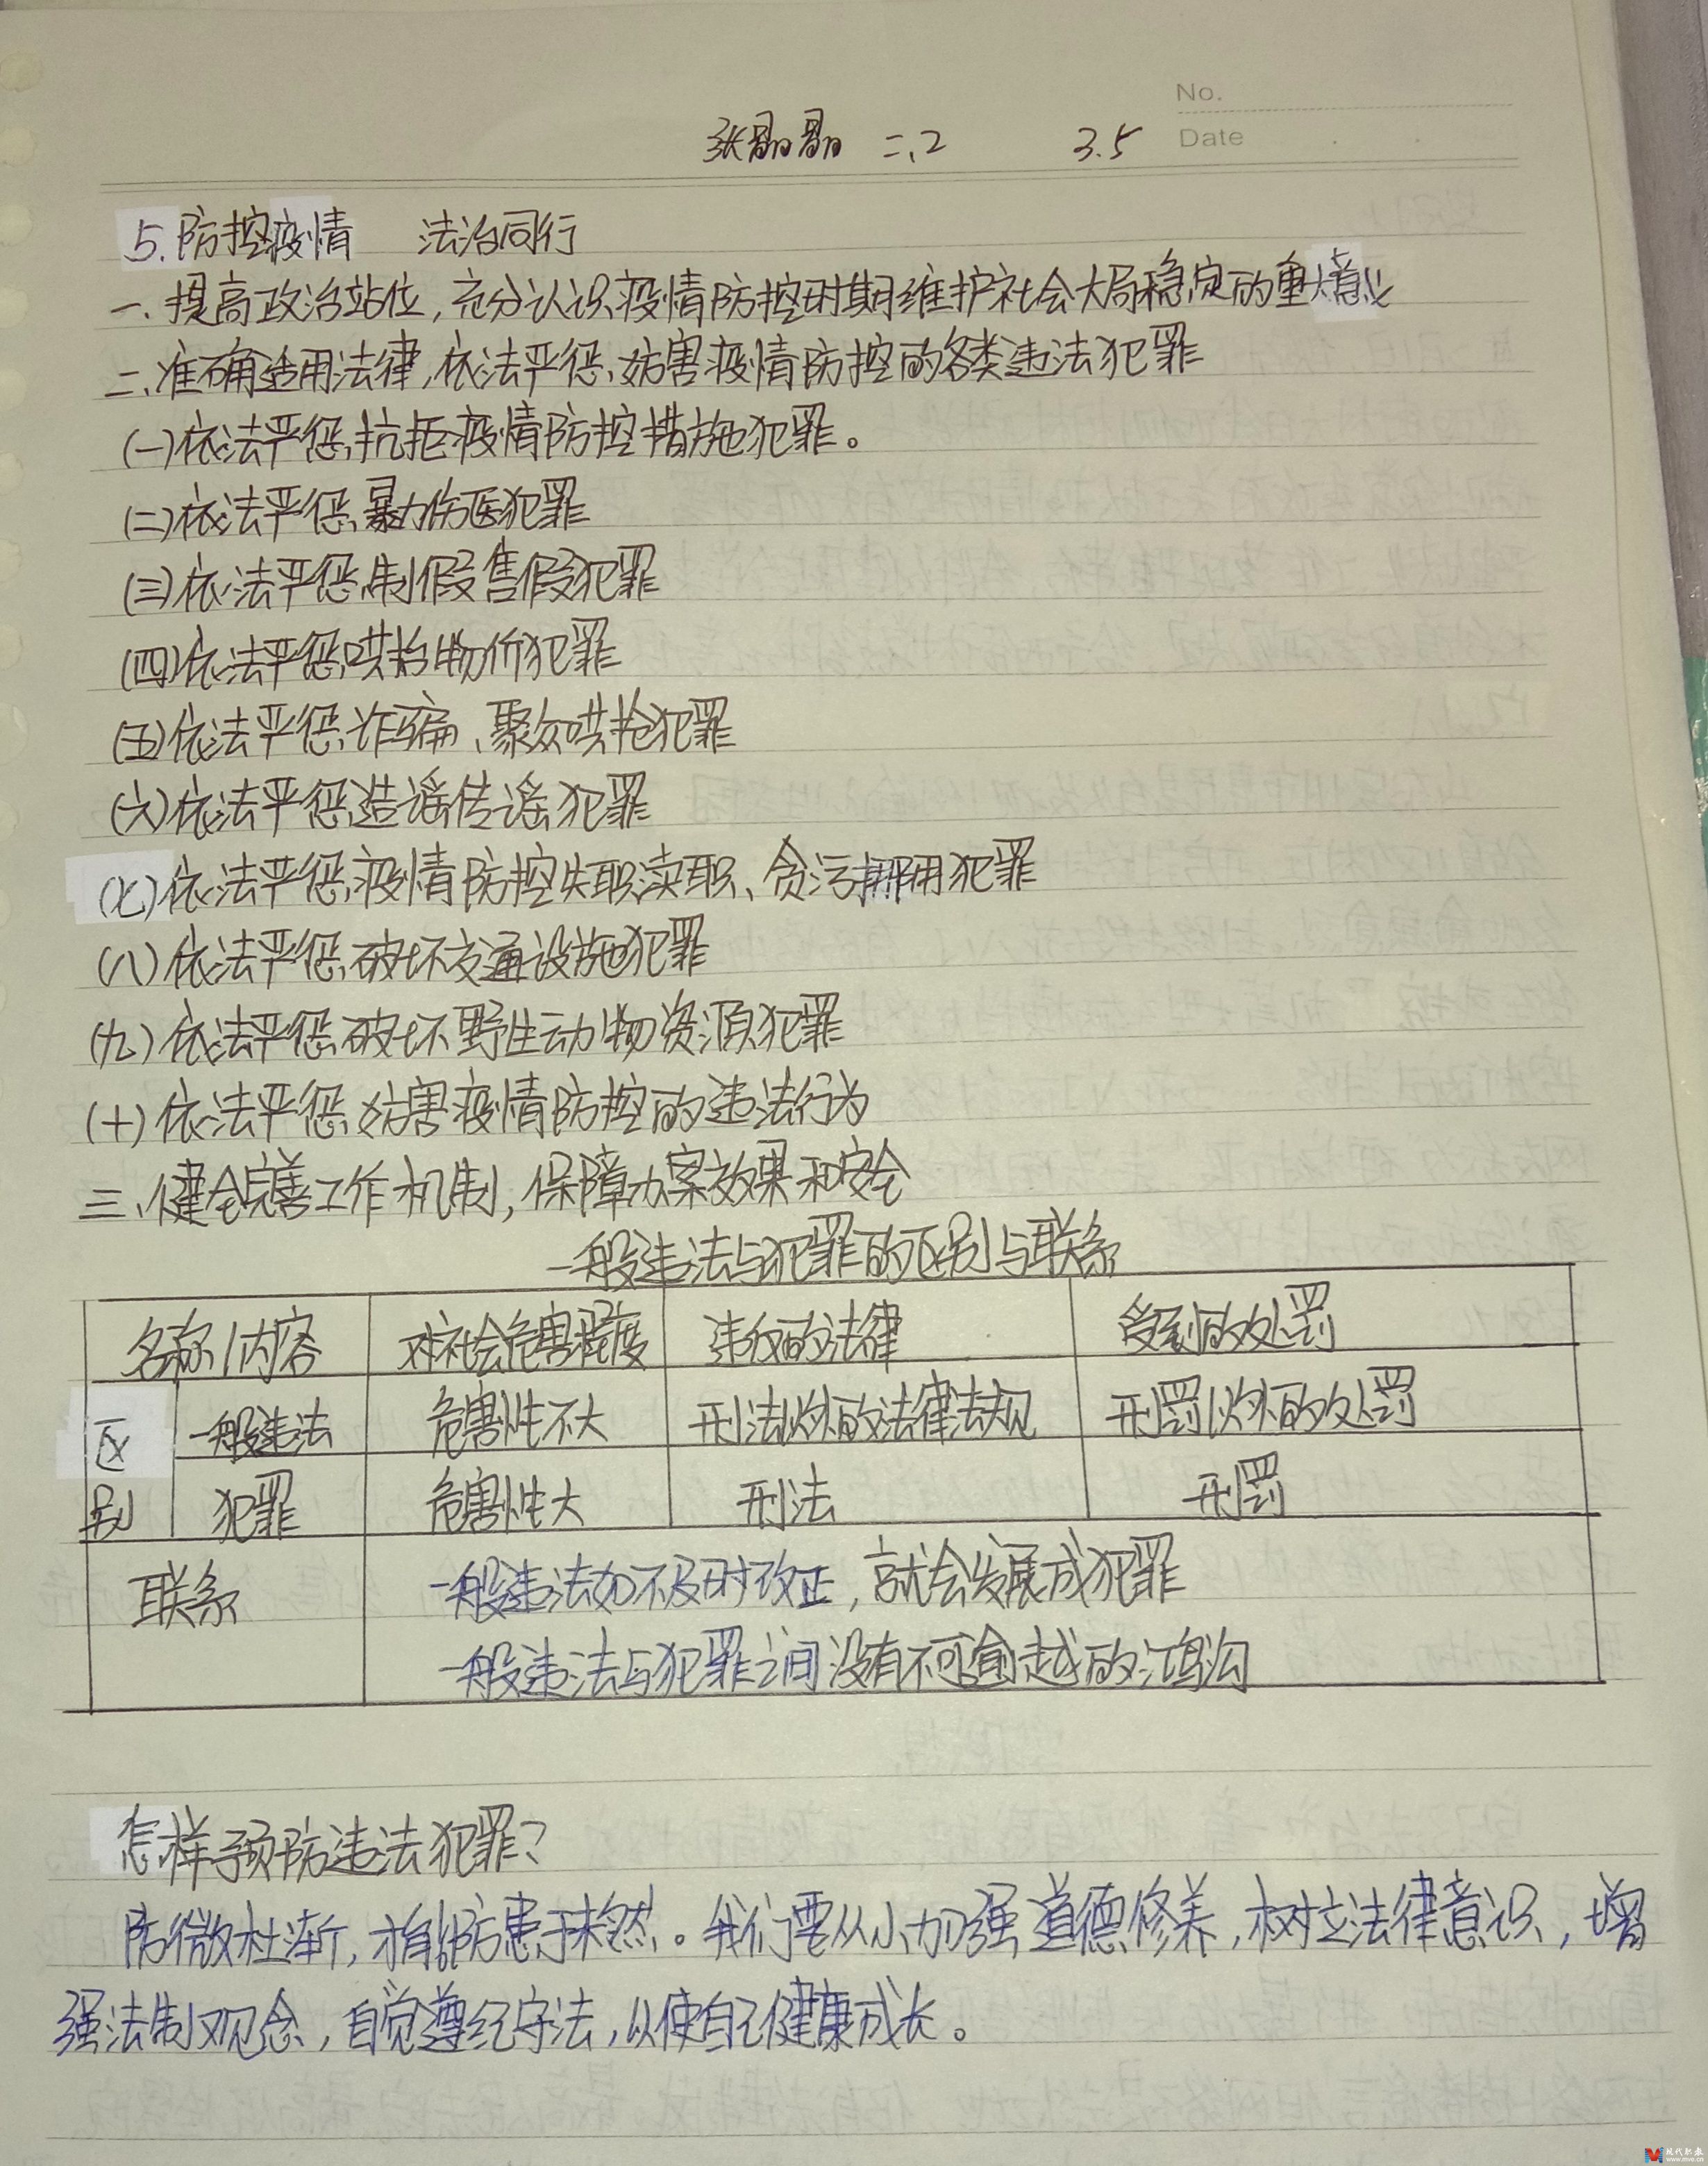 No.
张晶晶 二、2 3.5 Date
5.防控疫情 法治同行
一、提高政治站位，充分认识疫情防控时期维护社会大局稳定的重大意义
二、准确适用法律，依法严惩妨害疫情防控的各类违法犯罪
(一)依法严惩抗拒疫情防控措施犯罪。
(二)依法严惩暴力伤医犯罪
(三)依法严惩制假售假犯罪
(四)依法严惩哄抬物价犯罪
(五)依法严惩诈骗、聚众哄抢犯罪
(六)依法严惩造谣传谣犯罪
(七)依法严惩疫情防控失职渎职、贪污挪用犯罪
(八)依法严惩破坏交通设施犯罪
(九)依法严惩破坏野生动物资源犯罪
(十)依法严惩妨害疫情防控的违法行为
三、健全完善工作机制，保障办案效果和安全
一般违法与犯罪的区别与联系
名称/内容 对社会危害程度 违反的法律 受到的处罚
区别 一般违法 危害性不大 刑法以外的法律法规 刑罚以外的处罚
犯罪 危害性大 刑法 刑罚
联系 一般违法如不及时改正，就会发展成犯罪
一般违法与犯罪之间没有不可逾越的鸿沟
怎样预防违法犯罪？
防微杜渐，才能防患于未然。我们要从小加强道德修养，树立法律意识，增
强法制观念，自觉遵纪守法，以使自己健康成长。
现代职教
www.mve.cn